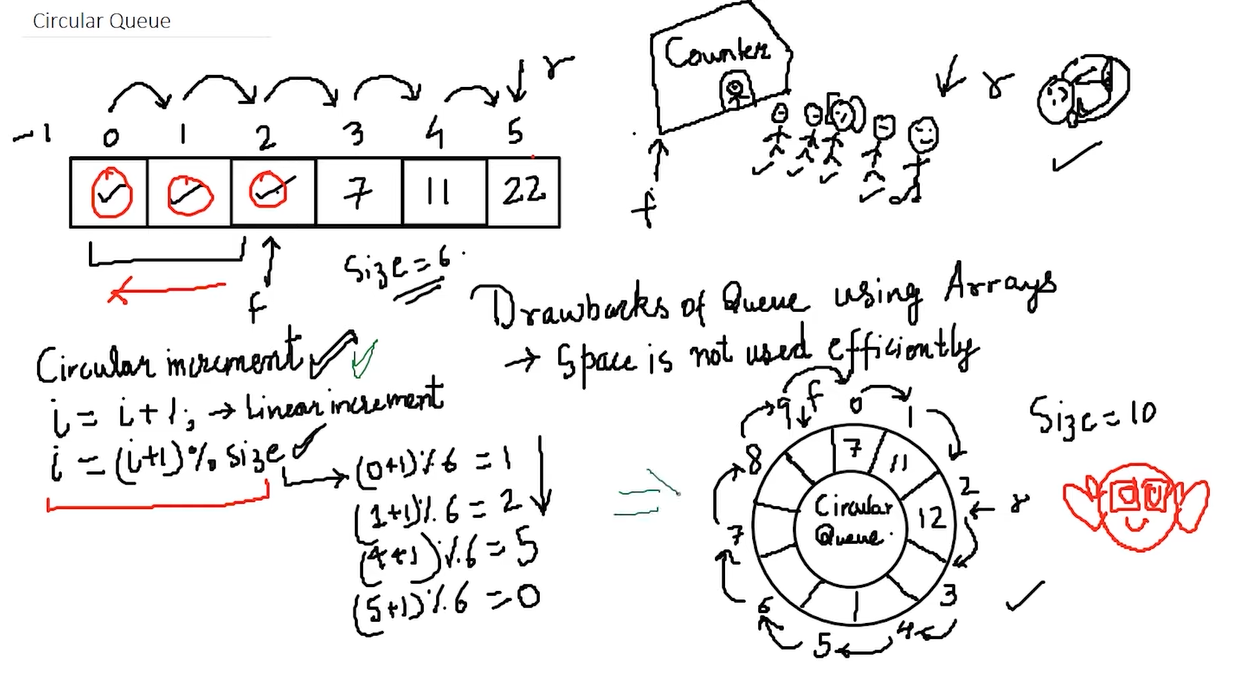 Circular Queue
r
-1 0 1 2 3 4 5
7 11 22
f
Size = 6
Counter
f
r
Drawbacks of Queue using Arrays
→ Space is not used efficiently
Circular increment
i = i+1; → Linear increment
i = (i+1) % size
(0+1)%6 = 1
(1+1)%6 = 2
(4+1)%6 = 5
(5+1)%6 = 0
f
0 1 2 3 4 5 6 7 8 9
7 11 12
r
Circular
Queue
Size = 10